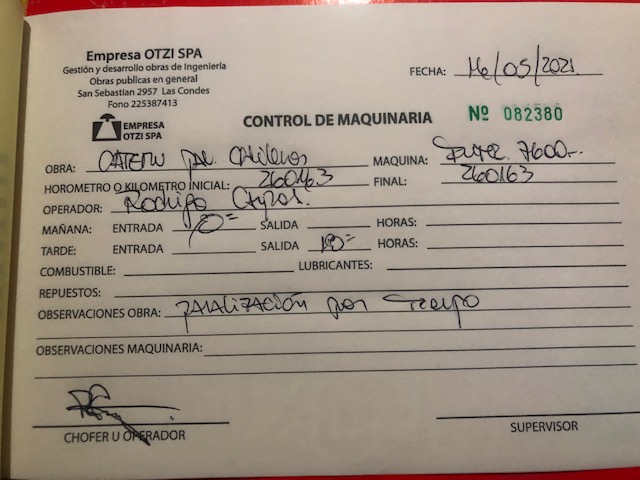 Empresa OTZI SPA
Gestión y desarrollo obras de Ingeniería
Obras publicas en general
San Sebastian 2957 Las Condes
Fono 225387413
FECHA: 16/05/2021
EMPRESA
OTZI SPA
CONTROL DE MAQUINARIA
Nº 082380
OBRA: MAQUINA: 7600
HOROMETRO O KILOMETRO INICIAL: 260163 FINAL: 260163
OPERADOR: Rodrigo
MAÑANA: ENTRADA 8= SALIDA HORAS:
TARDE: ENTRADA SALIDA 18= HORAS:
COMBUSTIBLE: LUBRICANTES:
REPUESTOS:
OBSERVACIONES OBRA: Paralización por tiempo
OBSERVACIONES MAQUINARIA:
CHOFER U OPERADOR
SUPERVISOR